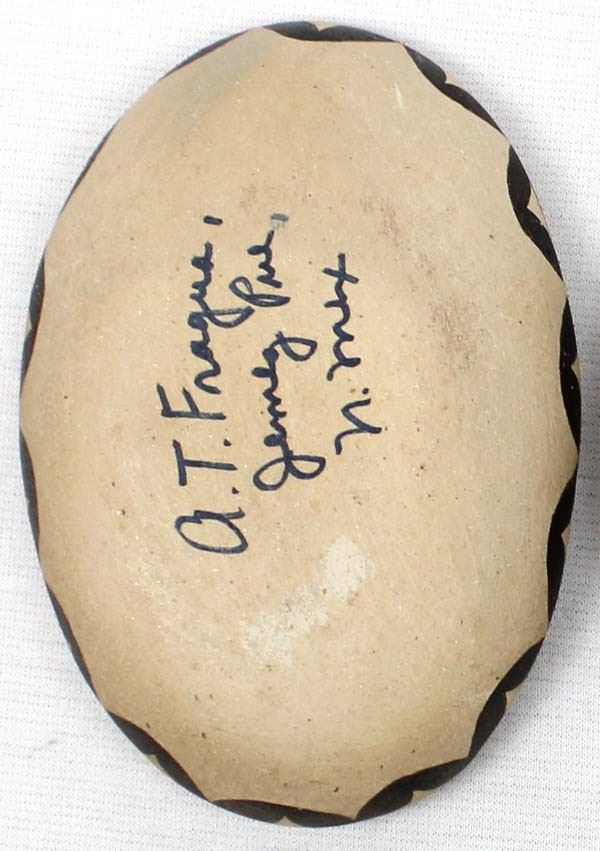 A.T. Fragua,
Jemez Pue,
N. Mex